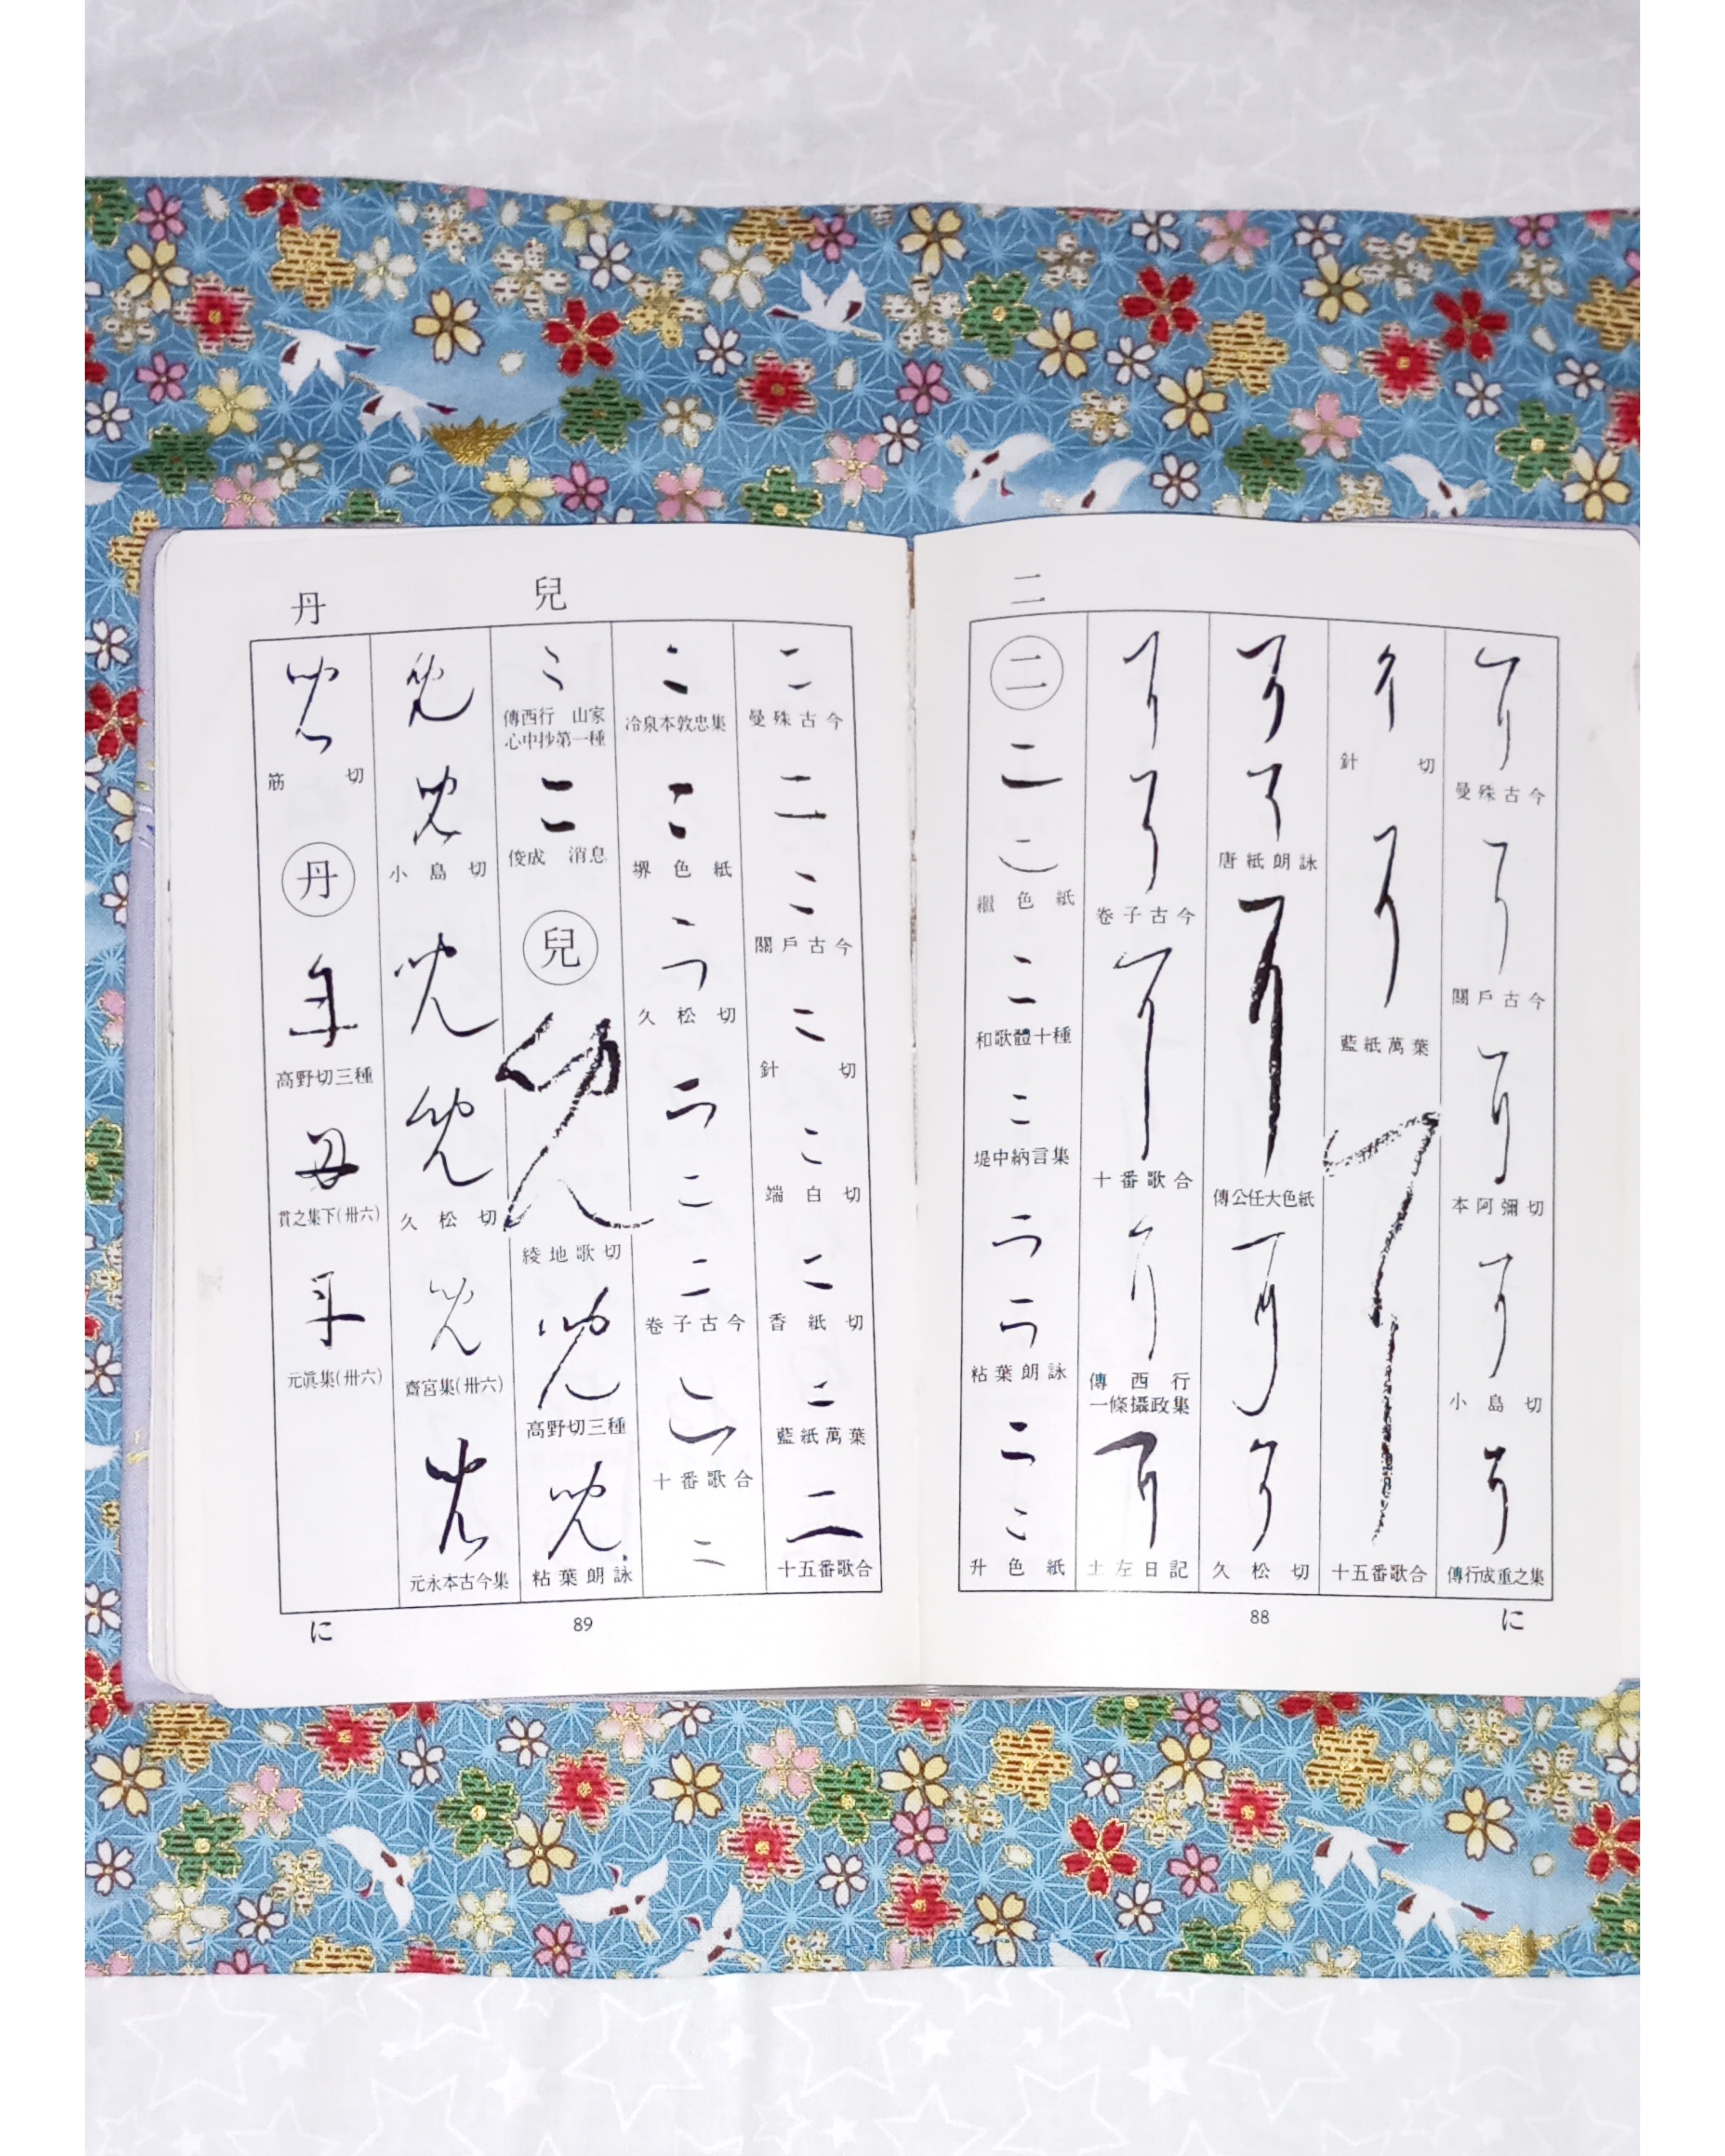 二
曼殊古今
關戶古今
本阿彌切
小島切
傳行成重之集
針切
藍紙萬葉
十五番歌合
唐紙朗詠
傳公任大色紙
久松切
卷子古今
十番歌合
傳西行
一條攝政集
土左日記
二
繼色紙
和歌體十種
堤中納言集
粘葉朗詠
升色紙
に
88
兒
丹
曼殊古今
關戶古今
針切
端白切
香紙切
藍紙萬葉
十五番歌合
冷泉本敦忠集
堺色紙
久松切
卷子古今
十番歌合
傳西行 山家
心中抄第一種
俊成 消息
兒
綾地歌切
高野切三種
粘葉朗詠
小島切
久松切
齋宮集(卅六)
元永本古今集
筋切
丹
高野切三種
貫之集下(卅六)
元眞集(卅六)
89
に